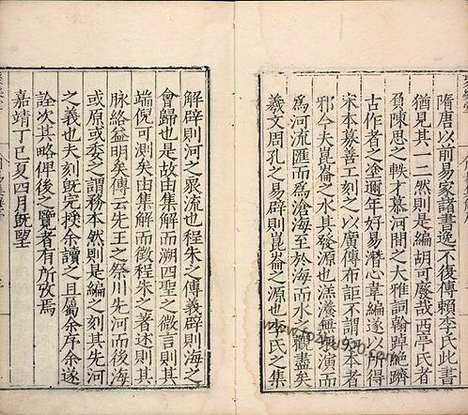 隋唐以前易家諸書逸不復傳賴李氏此書
猶見其一二然則是編胡可廢哉西亭氏者
負陳思之軼才慕河間之大雅詞翰踔絶躋
古作者之金邇年好易潛心韋編遂以所得
宋本募善工刻之以廣傳布詎不謂知本者
邪今夫崑崙之水其發源也洋洋無聲渾渾
為河流匯而為滄海至於海而水
羲文周孔之易辟則崑崙之源也李氏之集
解辟則河之衆流也程朱之傳義辟則海之
會歸也是故由集解而溯四聖之微言則其
端倪可測矣由集解而徵程朱之著述則其
脉絡益明矣傳云先王之祭川先河而後海
或原或委之謂務本然則是編之刻其先河
之義也夫刻旣完授余讀之且屬余序余遂
詮次其略俾後之覽者有所攷焉
嘉靖丁巳夏四月旣朢